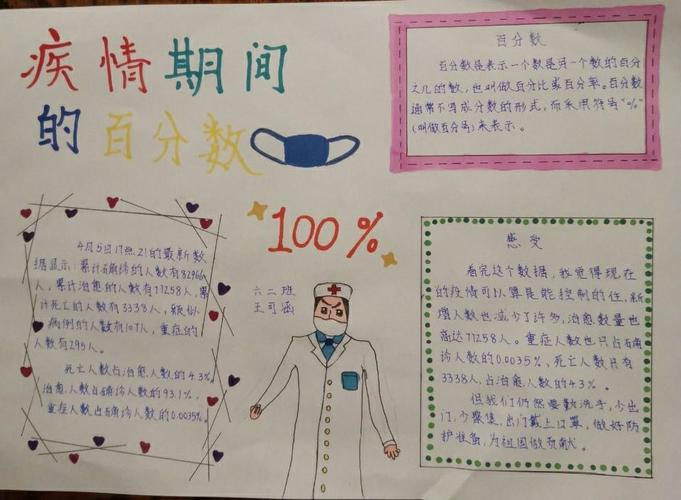 疾情期间
的百分数
百分数
百分数是表示一个数是另一个数的百分
之几的数，也叫做百分比或百分率。百分数
通常不写成分数的形式，而采用符号“%”
（叫做百分号）来表示。
100%
六二班
王可涵
4月5日17点21的最新数
据显示：累计确诊的人数有82966
人，累计治愈的人数有77258人，累
计死亡的人数有3338人，疑似
病例的人数有107人，重症的
人数有295人。
死亡人数占治愈人数的4.3%
治愈人数占确诊人数的93.1%，
重症人数占确诊人数的0.0035%。
感受
看完这个数据，我觉得现在
的疫情可以算是能控制的住，新
增人数也减少了许多，治愈数量也
高达77258人。重症人数也只占确
诊人数的0.0035%，死亡人数只有
3338人，占治愈人数的4.3%。
但我们仍然要勤洗手，少出
门，少聚集，出门戴上口罩，做好防
护准备，为祖国做贡献。